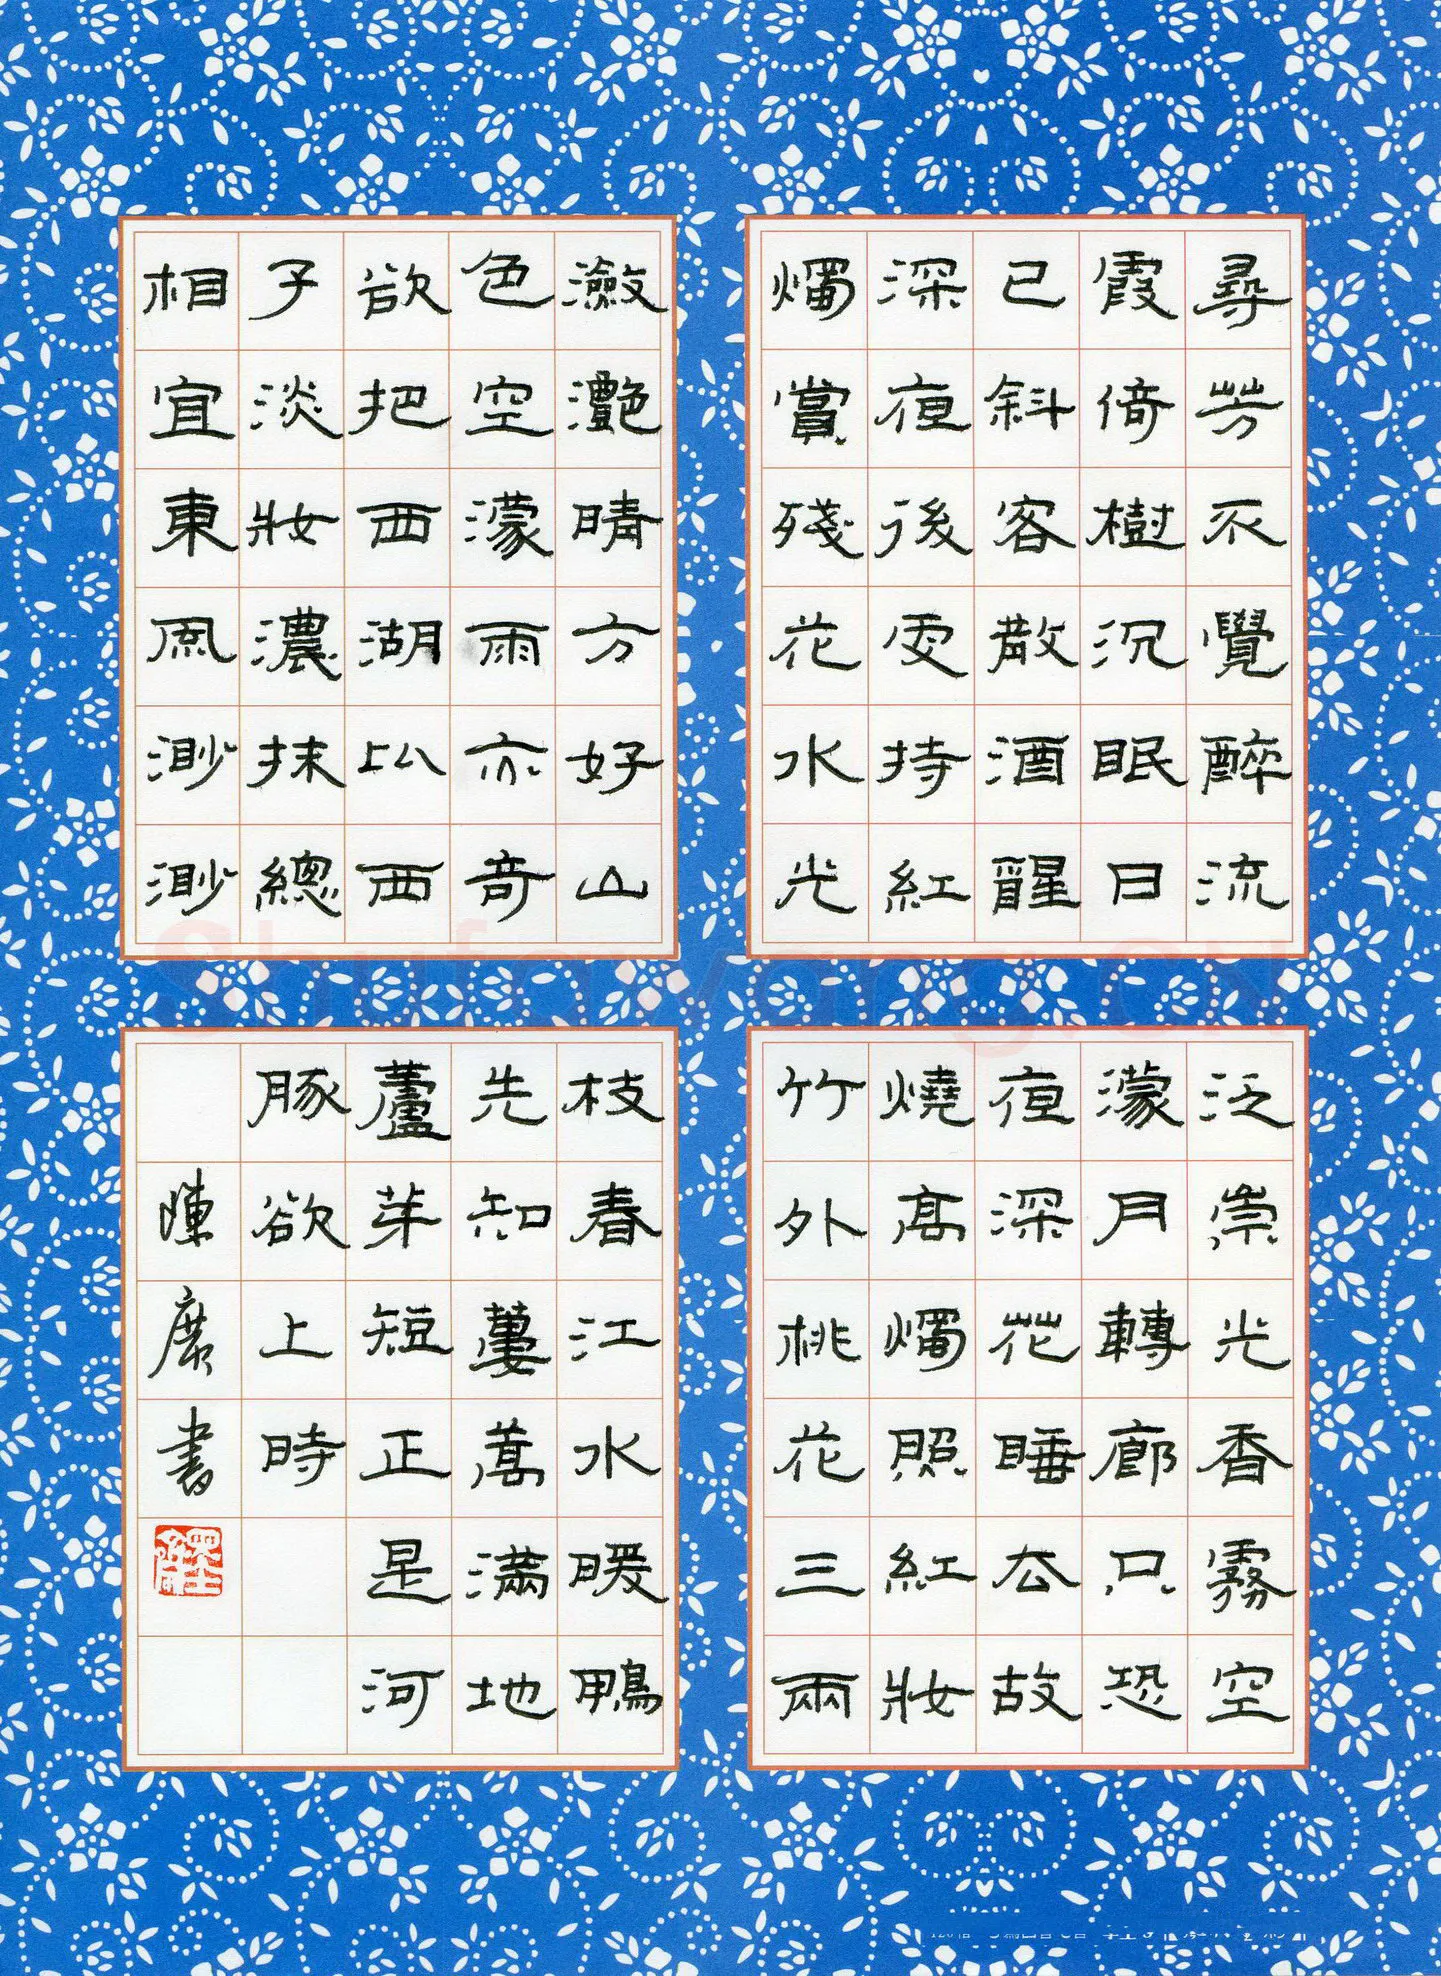 尋芳不覺醉流
霞倚樹沉眠日
已斜客散酒醒
深夜後更持紅
燭賞殘花水光
瀲灩晴方好山
色空濛雨亦奇
欲把西湖比西
子淡妝濃抹總
相宜東風渺渺
泛崇光香霧空
濛月轉廊只恐
夜深花睡去故
燒高燭照紅妝
竹外桃花三兩
枝春江水暖鴨
先知蔞蒿滿地
蘆芽短正是河
豚欲上時
陳書
Shufawang.CN